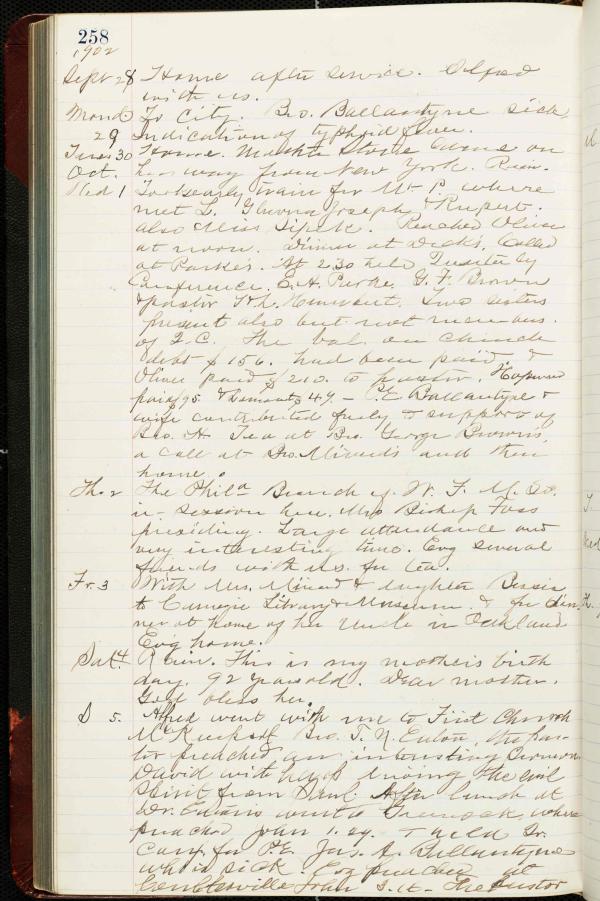 258
1902
Sept 28 Home after service. Alfred
with us.
Mond To City. Bro. Ballantyne sick,
29 Indication of typhoid fever.
Tues 30 Home. Stone came on
Oct. his way from New York. Rain.
Wed 1 Took early train for Mt P. where
met L. Joseph & Rupert.
also Miss Sipe. Reached Oliver
at noon. Dinner at Dicks. Called
at Parkes. At 2.30 held Quarterly
Conference. E. A. Parke. G. F. Brown
& pastor Two sisters
present also but not members
of Q.C. The bal. on church
debt $156. had been paid. &
Oliver paid $210. to pastor. Hopwood
paid 95 & 49 - P.E. Ballantyne &
wife contributed freely to support of
Bro. H. Tea at Bro. George Brown's,
a call at Bro. Minerds and then
home.
Th. 2 The Phila Branch of W. F. M. So.
in session here. Mrs Bishop Foss
presiding. Large attendance and
very interesting time. Evg several
friends with us for tea.
Fr. 3 With Mrs. Minerd & daughter Bessie
to Carnegie Library & Museum & for din-
ner at home of her uncle in Oakland
Evg home.
Sat. 4. Rain. This is my mother's birth
day. 92 years old. Dear mother.
God bless her.
S 5. Alfred went with me to First Church
McKeesport. Bro. T. N. Eaton, the pas-
tor preached an interesting sermon
David with harp driving the evil
Spirit from Saul. After lunch at
Dr. Eatons went to Greenock, where
preached John 1. 29. & held Qr.
Conf. for P.E. Jas. A. Ballantyne
who is sick. Evg preached at
Coulterville John The Pastor